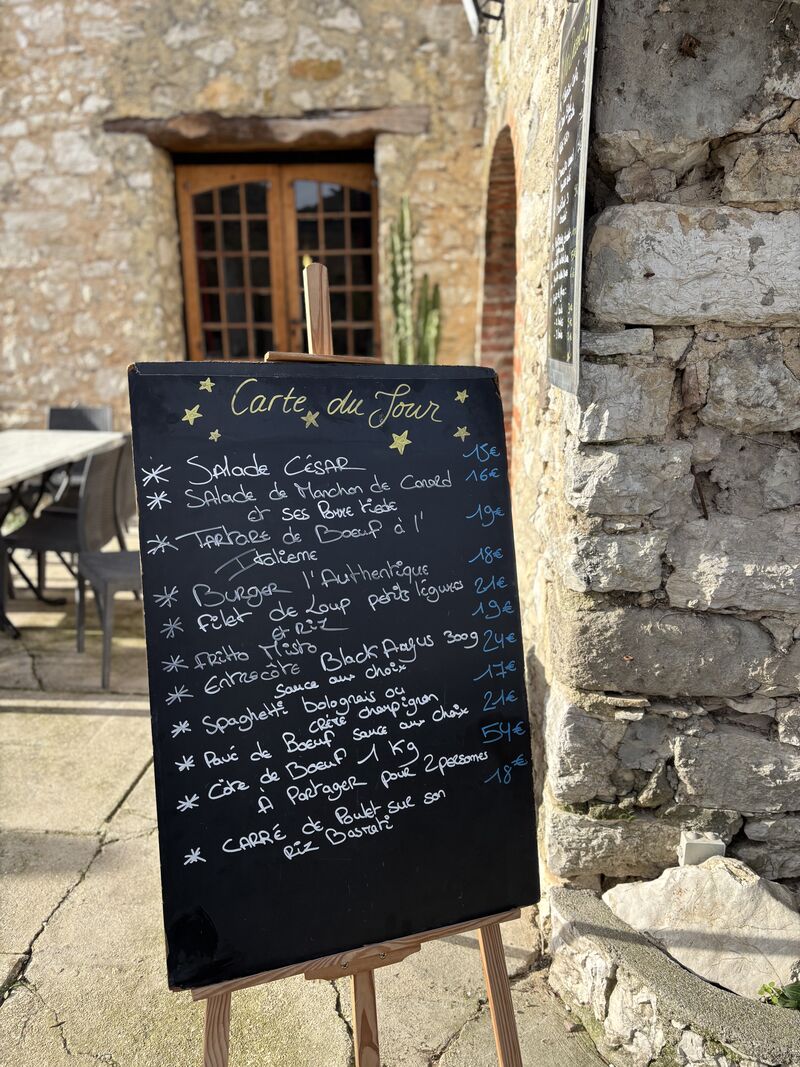 Carte du Jour
* Salade César 15€
* Salade de Manchon de Canard 16€
et ses Pomme tiede
* Tartare de Boeuf à l' 19€
Italienne
* Burger l'Authentique 18€
* Filet de Loup petits légumes 21€
et Riz
* Fritto Misto 19€
* Entrecôte Black Angus 300g 24€
sauce aux choix
* Spaghetti bolognais ou 17€
crème champignon
* Pavé de Boeuf sauce aux choix 21€
* Côte de Boeuf 1 Kg 54€
À Partager pour 2 personnes
* CARRÉ de Poulet sur son 18€
Riz Basmati